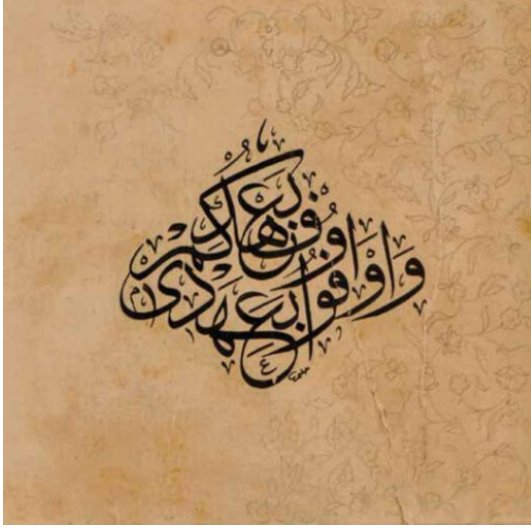 وَأَوْفُوا بِعَهْدِي
أُوفِ بِعَهْدِكُمْ